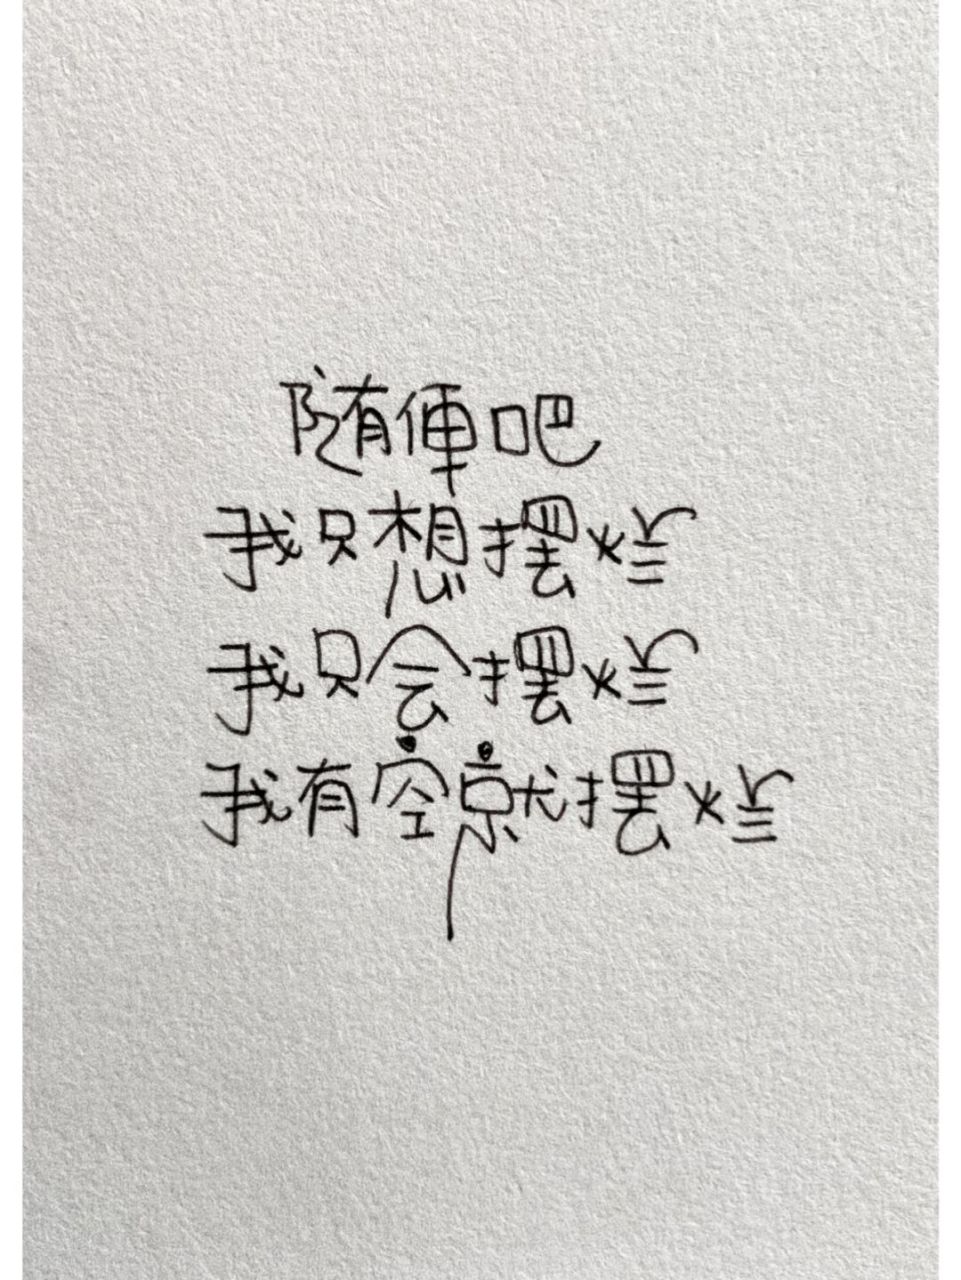 随便吧
我只想摆烂
我只会摆烂
我有空就摆烂